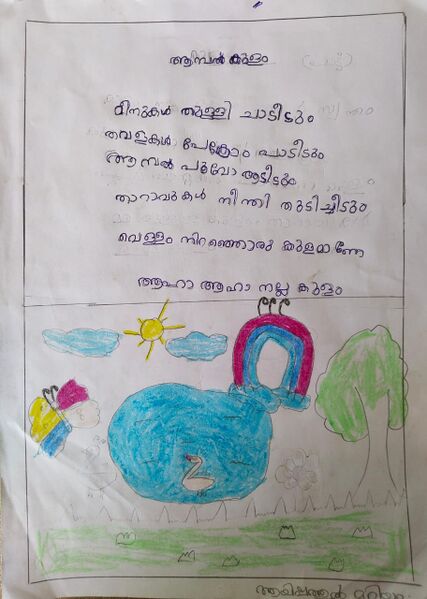 ആമ്പൽ കുളം
മീനുകൾ തുള്ളി ചാടീടും
തവളകൾ പേക്രോം പാടീടും
ആമ്പൽ പൂവോ ആടീടും
താറാവുകൾ നീന്തി തുടിച്ചീടും
വെള്ളം നിറഞ്ഞൊരു കുളമാണേ
ആഹാ ആഹാ നല്ല കുളം